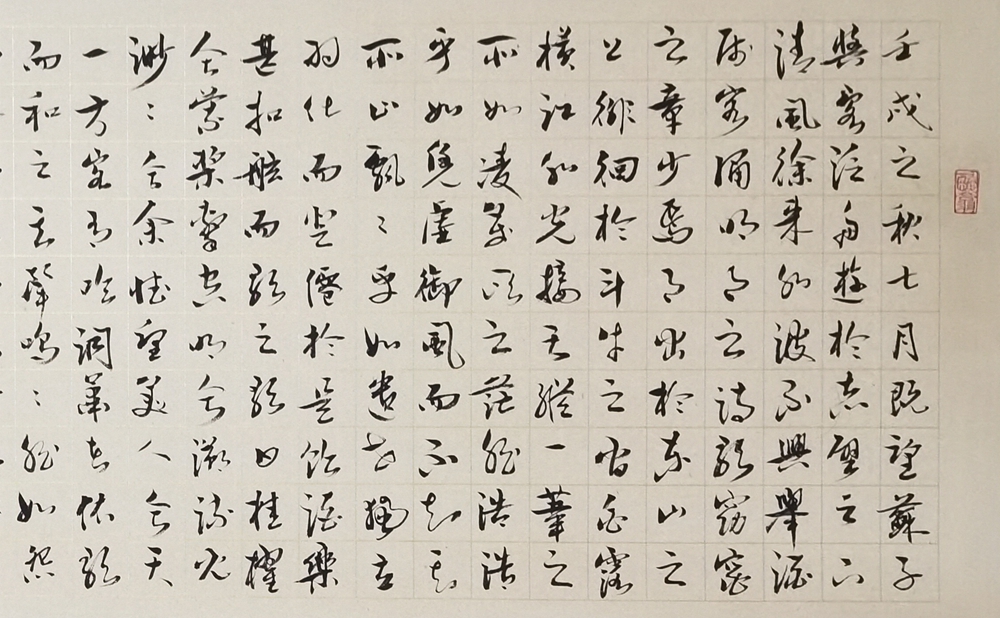 壬戌之秋七月既望蘇子
與客泛舟遊於赤壁之下
清風徐來水波不興舉酒
属客誦明月之詩歌窈窕
之章少焉月出於東山之
上徘徊於斗牛之間白露
橫江水光接天縱一葦之
所如凌萬頃之茫然浩浩
乎如凭虛御風而不知其
所止飄〻乎如遺世獨立
羽化而登僊於是飲酒樂
甚扣舷而歌之歌曰桂櫂
兮蘭槳擊空明兮溯流光
渺〻兮余懷望美人兮天
一方客有吹洞簫者依歌
而和之其聲鳴〻然如怨